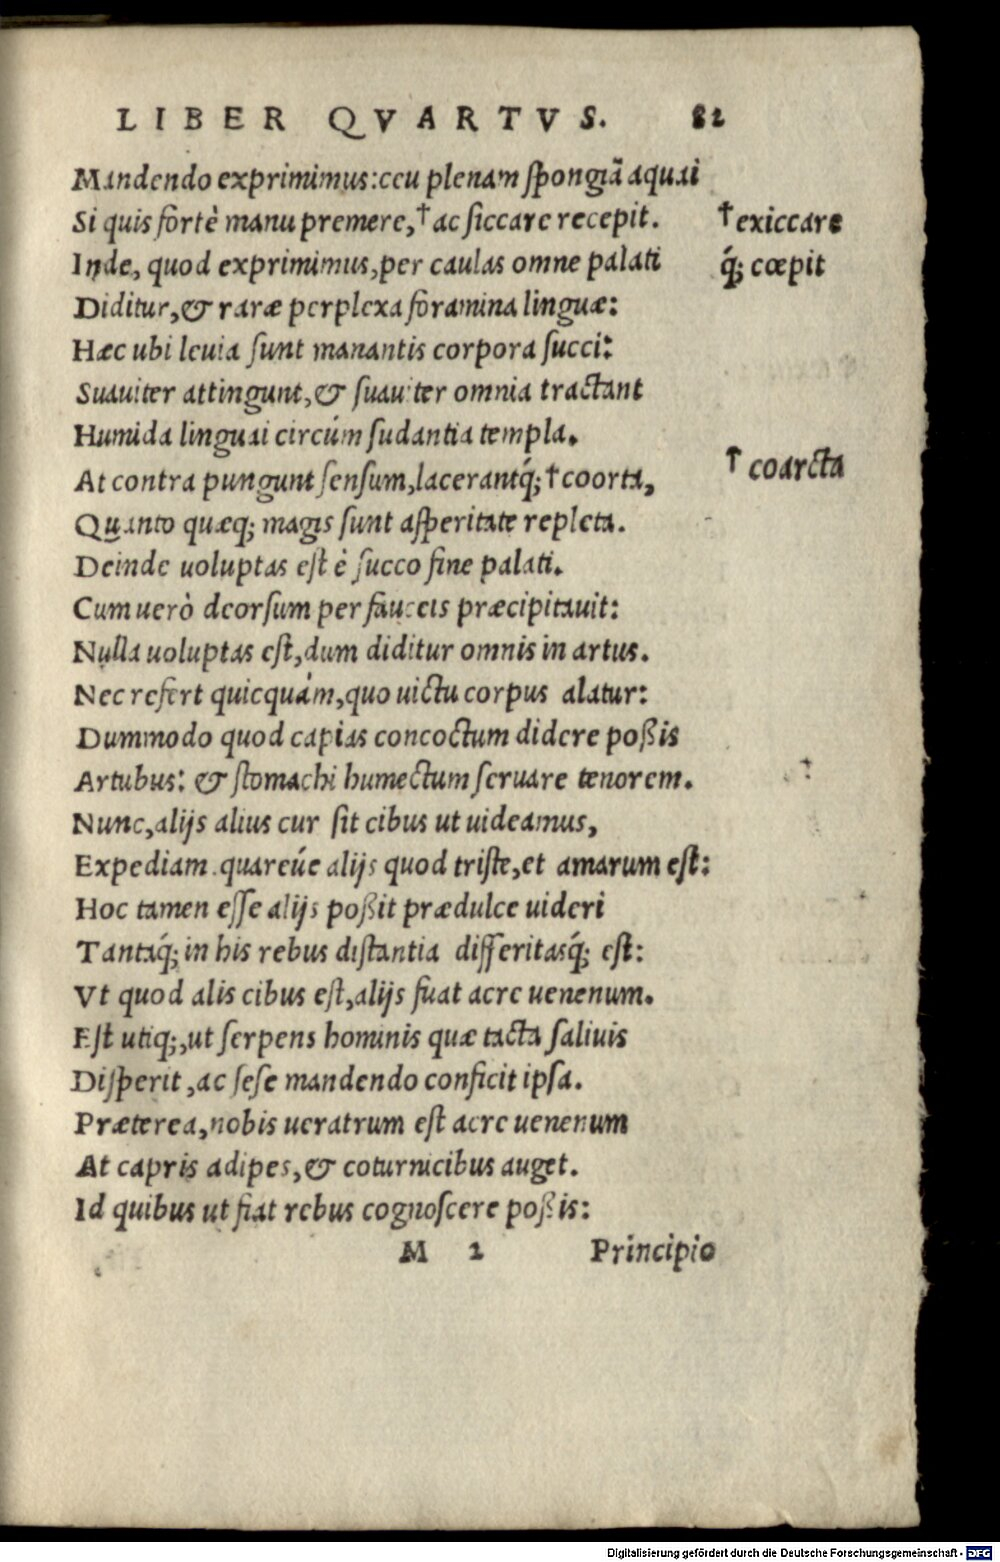 LIBER QVARTVS. 82
Mandendo exprimimus:ceu plenam spongiã aquai
Si quis fortè manu premere,†ac siccare recepit. †exiccare
Inde, quod exprimimus,per caulas omne palati q́; cœpit
Diditur,& raræ perplexa foramina linguæ:
Hæc ubi leuia sunt manantis corpora succi:
Suauiter attingunt,& suauiter omnia tractant
Humida linguai circúm sudantia templa.
At contra pungunt sensum,lacerantq́;†coorta, †coarcta
Quanto quæq; magis sunt asperitate repleta.
Deinde uoluptas est è succo fine palati.
Cum uerò deorsum per fauceis præcipitauit:
Nulla uoluptas est,dum diditur omnis in artus.
Nec refert quicquám,quo uictu corpus alatur:
Dummodo quod capias concoctum didere poßis
Artubus: & stomachi humectum seruare tenorem.
Nunc,alijs alius cur sit cibus ut uideamus,
Expediam.quareúe alijs quod triste,et amarum est:
Hoc tamen esse alijs poßit prædulce uideri
Tantaq́; in his rebus distantia differitasq́; est:
Vt quod alis cibus est,alijs fuat acre uenenum.
Est utiq;,ut serpens hominis quæ tacta saliuis
Disperit,ac sese mandendo conficit ipsa.
Præterea,nobis ueratrum est acre uenenum
At capris adipes,& coturnicibus auget.
Id quibus ut fiat rebus cognoscere poßis:
M 2 Principio
Digitalisierung gefördert durch die Deutsche Forschungsgemeinschaft - DFG